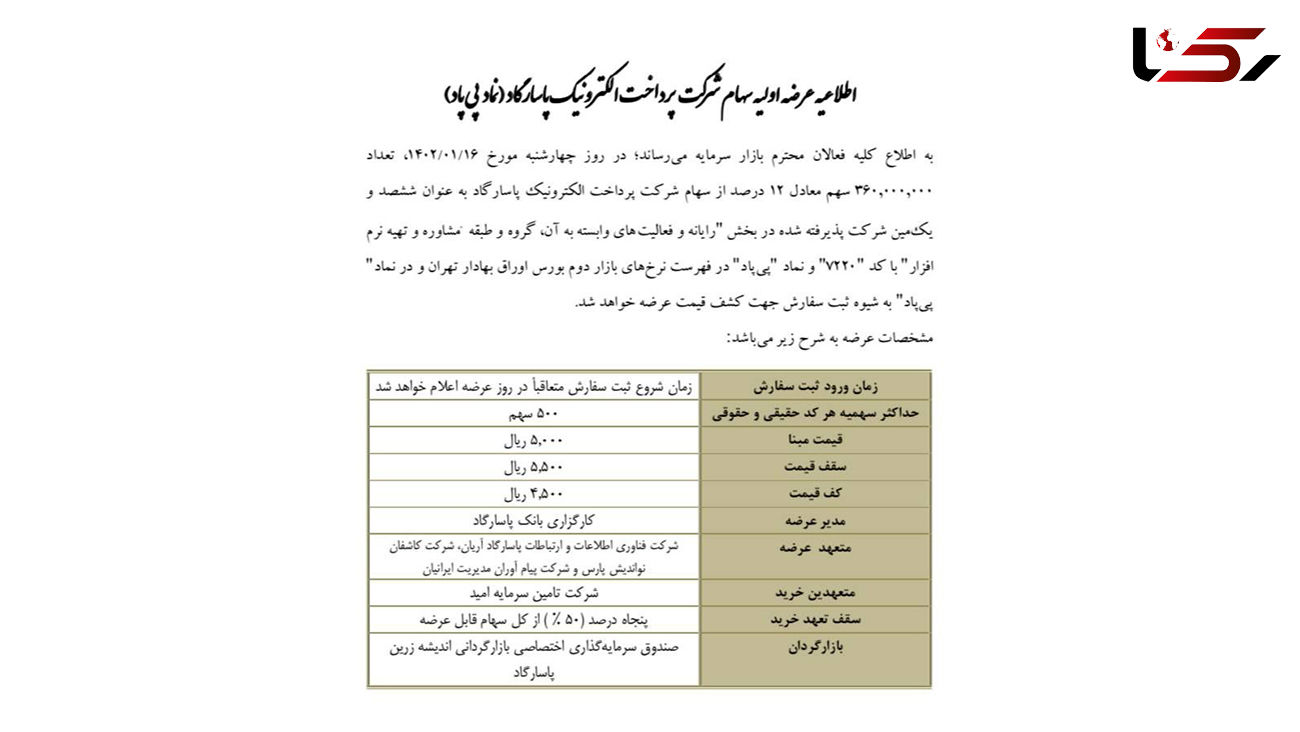 رکنا
اطلاعیه عرضه اولیه سهام شرکت پرداخت الکترونیک پاسارگاد (نماد پی پاد)
به اطلاع کلیه فعالان محترم بازار سرمایه می‌رساند؛ در روز چهارشنبه مورخ ۱۴۰۲/۰۱/۱۶، تعداد
۳۶۰,۰۰۰,۰۰۰ سهم معادل ۱۲ درصد از سهام شرکت پرداخت الکترونیک پاسارگاد به عنوان ششصد و
یک‌مین شرکت پذیرفته شده در بخش "رایانه و فعالیت‌های وابسته به آن، گروه و طبقه مشاوره و تهیه نرم
افزار" با کد "۷۲۲۰" و نماد "پی‌پاد" در فهرست نرخ‌های بازار دوم بورس اوراق بهادار تهران و در نماد"
پی‌پاد" به شیوه ثبت سفارش جهت کشف قیمت عرضه خواهد شد.
مشخصات عرضه به شرح زیر می‌باشد:
زمان ورود ثبت سفارش زمان شروع ثبت سفارش متعاقباً در روز عرضه اعلام خواهد شد
حداکثر سهمیه هر کد حقیقی و حقوقی ۵۰۰ سهم
قیمت مبنا ۵,۰۰۰ ریال
سقف قیمت ۵,۵۰۰ ریال
کف قیمت ۴,۵۰۰ ریال
مدیر عرضه کارگزاری بانک پاسارگاد
متعهد عرضه شرکت فناوری اطلاعات و ارتباطات پاسارگاد آریان، شرکت کاشفان
نواندیش پارس و شرکت پیام آوران مدیریت ایرانیان
متعهدین خرید شرکت تامین سرمایه امید
سقف تعهد خرید پنجاه درصد (۵۰ ٪ ) از کل سهام قابل عرضه
بازارگردان صندوق سرمایه‌گذاری اختصاصی بازارگردانی اندیشه زرین
پاسارگاد